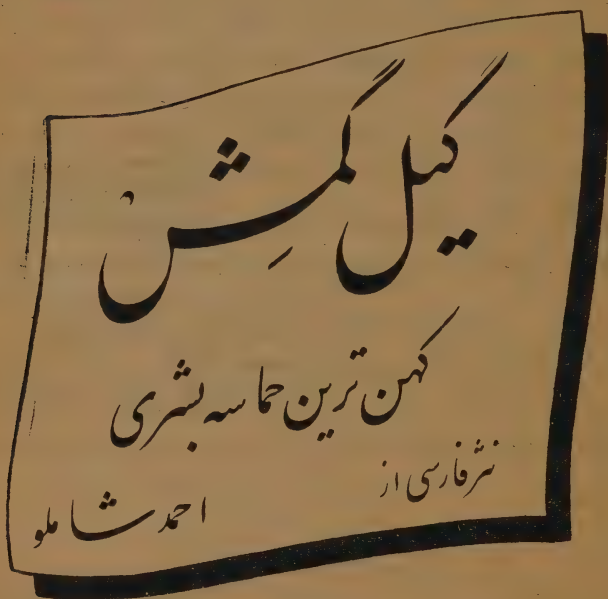 گیل گمِش
کهن ترین حماسه بشری
نثر فارسی از
احمد شاملو